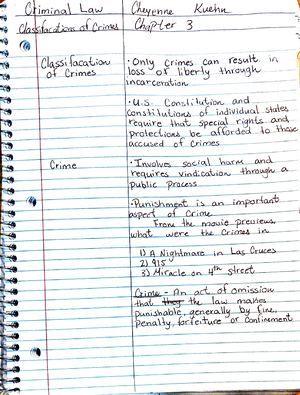 Criminal Law
Cheyenne Kuehn
Classifacations of Crimes
Chapter 3
Classifacation of Crimes
· Only crimes can result in
loss of liberty through
incarceration
· U.S. Constitution and
constitutions of individual states
require that special rights and
protections be afforded to those
accused of crimes
Crime
· Involves social harm and
requires vindication through a
public process
· Punishment is an important
aspect of Crime
From the movie previews,
what were the Crimes in
1) A Nightmare in Las Cruces
2) 915
3) Miracle on 4th street
Crime - An act of omission
that they the law makes
punishable, generally by fine,
penalty, forfeiture or confinement